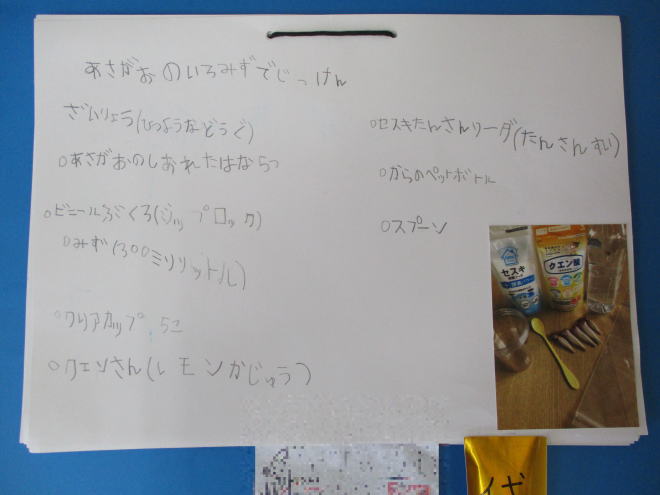 あさがおのいろみずでじっけん
ざいりょう(ひつようなどうぐ)
○あさがおのしおれたはな5つ
○ビニールぶくろ(ジップロック)
○みず(300ミリリットル)
○クリアカップ 5こ
○クエンさん(レモンかじゅう)
○セスキたんさんソーダ(たんさんすい)
○からのペットボトル
○スプーン
セスキ
クエン酸